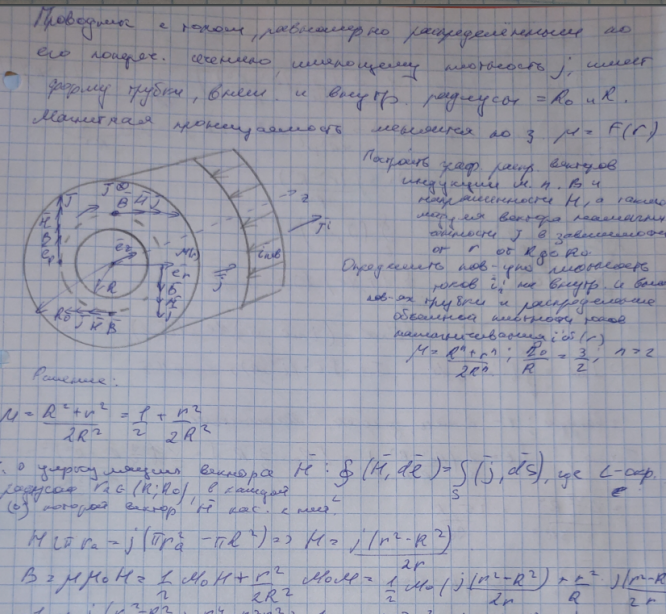 Проводник с током, равномерно распределенным по
его попереч. сечению, имеющему плотность j, имеет
форму трубки, внеш. и внутр. радиусы = R₀ и R.
Магнитная проницаемость меняется по з μ = F(r)
Построить граф. распр. векторов
индукции м. п. B и
напряженности H, а также
модуля вектора намагнич
енности J в зависимости
от r от R до R₀.
Определить пов-ную плотность
токов i' на внутр. и внеш
пов-ях трубки и распределение
объемной плотности токов
намагничивания i'об(r)
μ = Rⁿ+rⁿ / 2Rⁿ ; R₀/R = 3/2 ; n = 2
Решение:
μ = R²+r² / 2R² = 1/2 + r²/2R²
о циркуляции вектора H̄ : ∮ (H̄, dℓ̄) = ∫ₛ (j̄, dS̄), где L-окр.
радиусом rₐ ∈ (R; R₀), в каждой
(·) которой вектор H̄ кас. к ней
H 2π rₐ = j(πrₐ² − πR²) => H = j(r²−R²) / 2r
B = μμ₀H = 1/2 μ₀H + r²/2R² μ₀H = 1/2 μ₀ (j(r²−R²)/2r + r²/R² j(r²−R²)/2r